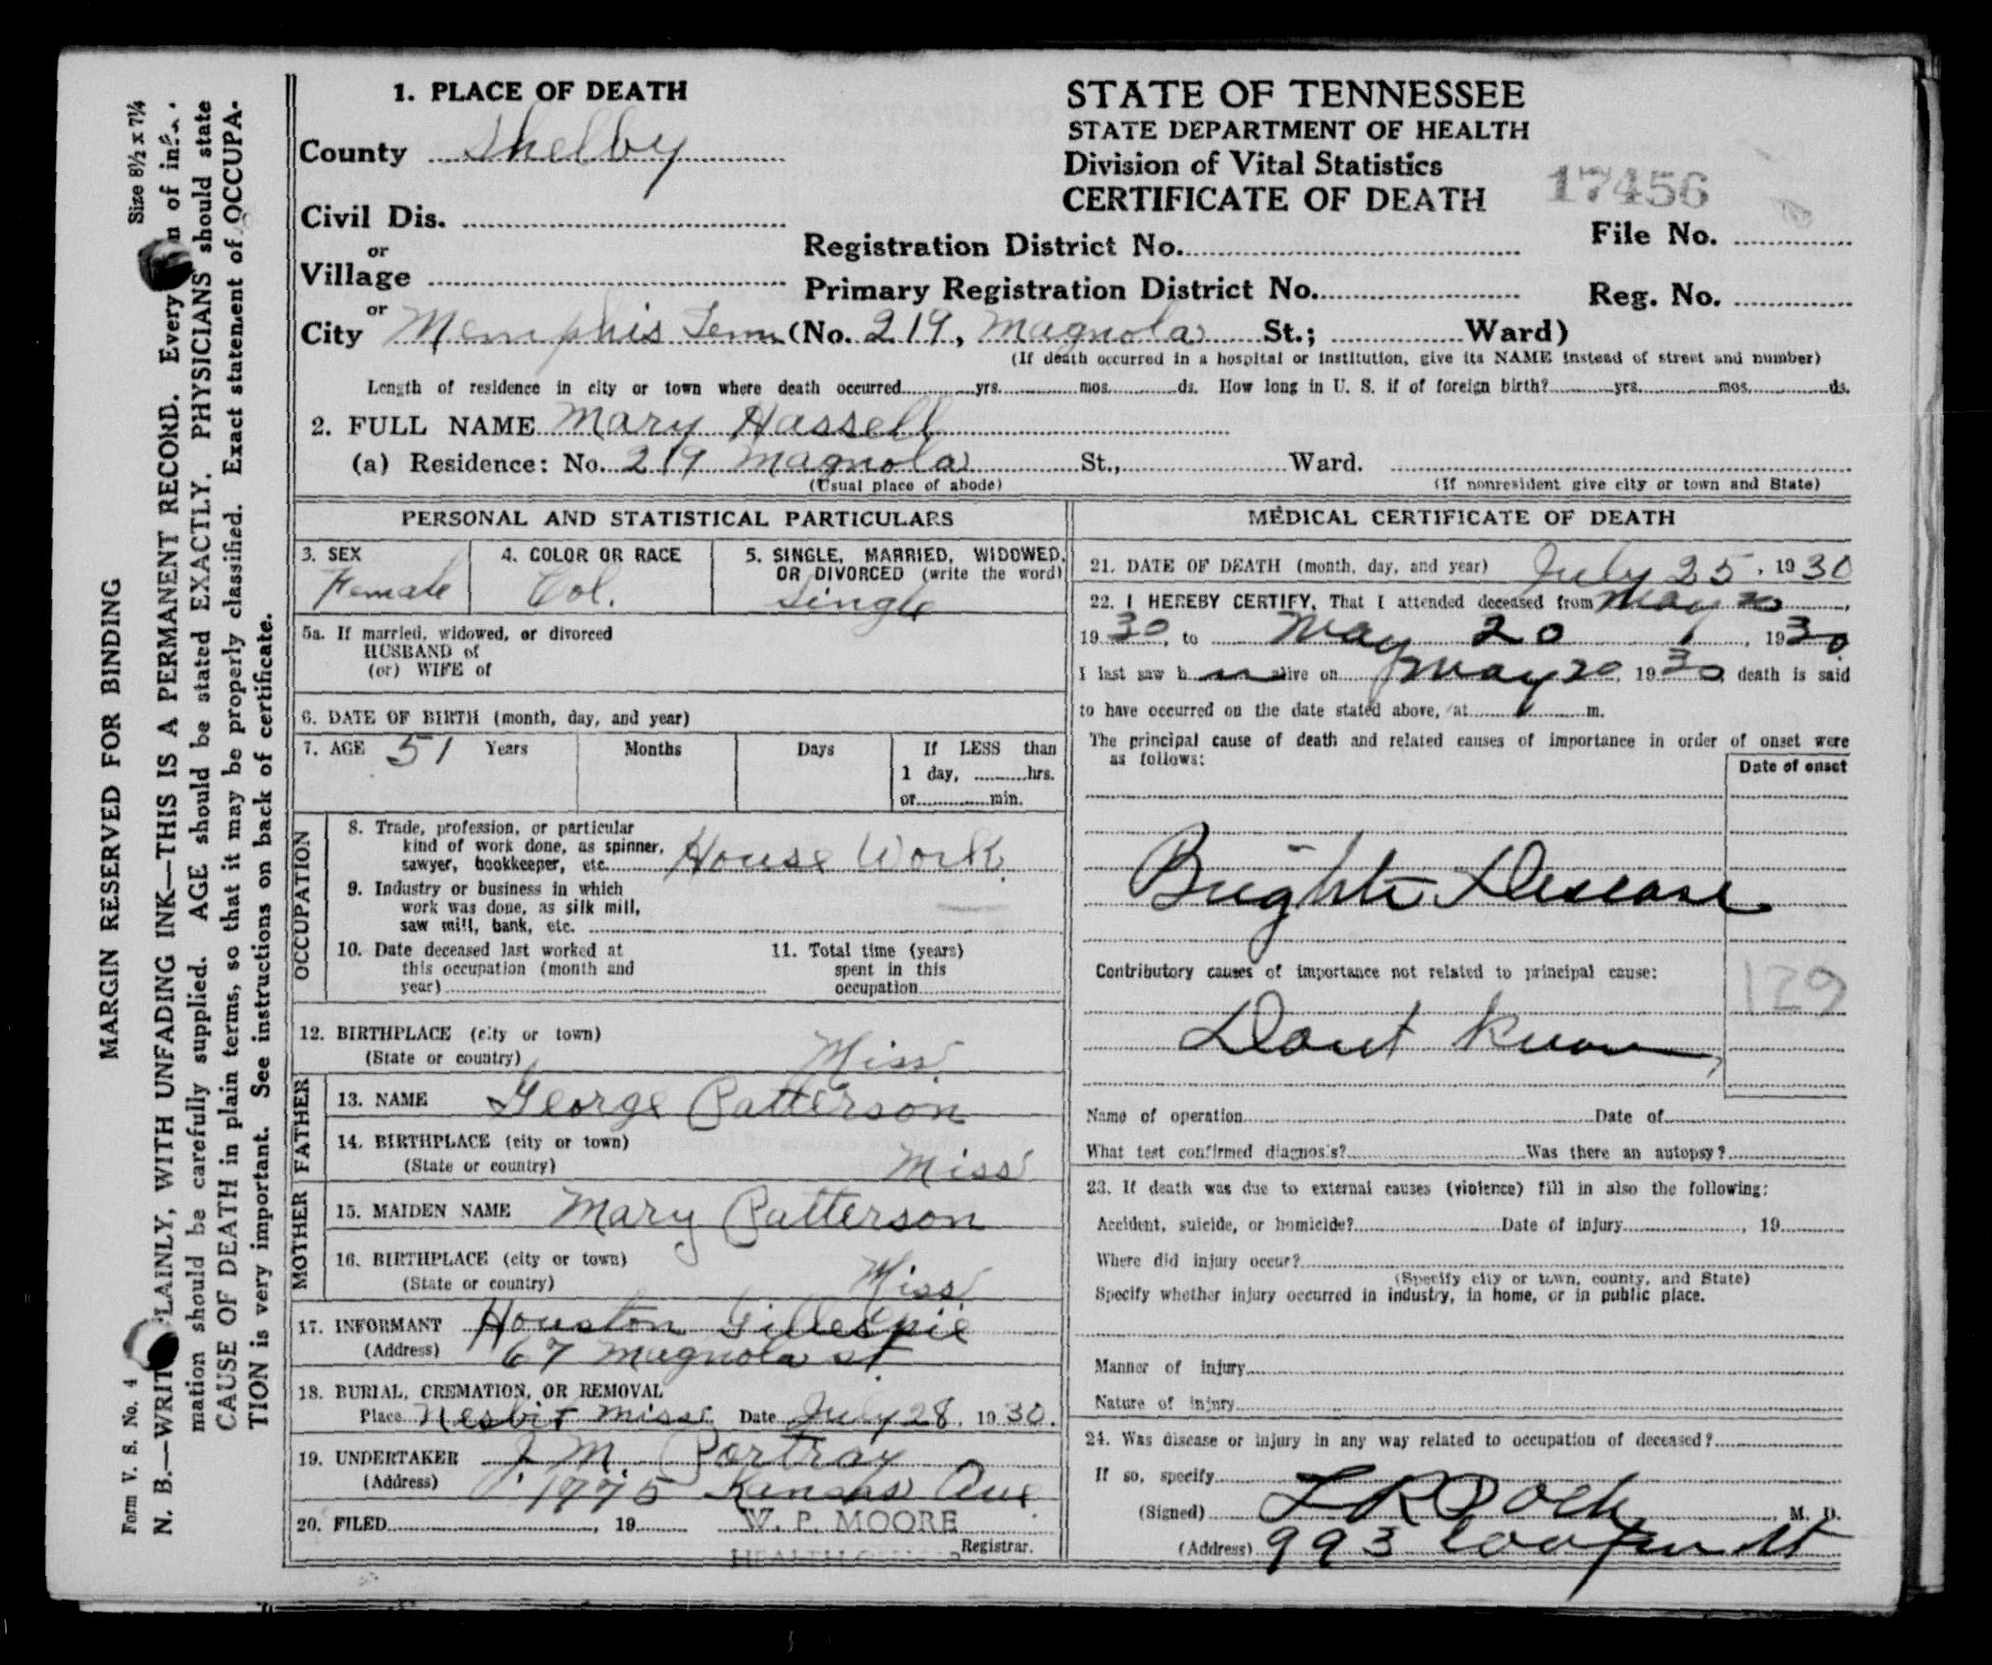 MARGIN RESERVED FOR BINDING
Size 8½ x 7¼
Form V. S. No. 4
N. B.—WRITE PLAINLY, WITH UNFADING INK—THIS IS A PERMANENT RECORD. Every of
mation should be carefully supplied. AGE should be stated EXACTLY. PHYSICIANS should state
CAUSE OF DEATH in plain terms, so that it may be properly classified. Exact statement of OCCUPA-
TION is very important. See instructions on back of certificate.
1. PLACE OF DEATH
County Shelby
Civil Dis.
or
Village
or
City Memphis Tenn (No. 219, Magnola St.; Ward)
(If death occurred in a hospital or institution, give its NAME instead of street and number)
STATE OF TENNESSEE
STATE DEPARTMENT OF HEALTH
Division of Vital Statistics
CERTIFICATE OF DEATH
17456
Registration District No.
File No.
Primary Registration District No.
Reg. No.
Length of residence in city or town where death occurred yrs. mos. ds. How long in U. S. if of foreign birth? yrs. mos. ds.
2. FULL NAME Mary Hassell
(a) Residence: No. 219 Magnola St., Ward.
(Usual place of abode) (If nonresident give city or town and State)
PERSONAL AND STATISTICAL PARTICULARS
3. SEX
Female
4. COLOR OR RACE
Col.
5. SINGLE, MARRIED, WIDOWED,
OR DIVORCED (write the word)
Single
5a. If married, widowed, or divorced
HUSBAND of
(or) WIFE of
6. DATE OF BIRTH (month, day, and year)
7. AGE 51 Years Months Days If LESS than
1 day, hrs.
or min.
OCCUPATION
8. Trade, profession, or particular
kind of work done, as spinner,
sawyer, bookkeeper, etc. House Work
9. Industry or business in which
work was done, as silk mill,
saw mill, bank, etc.
10. Date deceased last worked at
this occupation (month and
year)
11. Total time (years)
spent in this
occupation
12. BIRTHPLACE (city or town)
(State or country) Miss
FATHER
13. NAME George Patterson
14. BIRTHPLACE (city or town)
(State or country) Miss
MOTHER
15. MAIDEN NAME Mary Patterson
16. BIRTHPLACE (city or town)
(State or country) Miss
17. INFORMANT Houston Gillespie
(Address) 67 Magnola st
18. BURIAL, CREMATION, OR REMOVAL
Place Nesbit Miss Date July 28, 1930.
19. UNDERTAKER J. M. Portray
(Address) 1775 Kansas Ave
20. FILED , 19 W. P. MOORE
Registrar.
MEDICAL CERTIFICATE OF DEATH
21. DATE OF DEATH (month, day, and year) July 25, 1930
22. I HEREBY CERTIFY, That I attended deceased from May 20,
1930, to May 20, 1930
I last saw h alive on May 20, 1930 death is said
to have occurred on the date stated above, at m.
The principal cause of death and related causes of importance in order of onset were
as follows:
Date of onset
Brights Disease
Contributory causes of importance not related to principal cause:
129
Dont know
Name of operation Date of
What test confirmed diagnosis? Was there an autopsy?
23. If death was due to external causes (violence) fill in also the following:
Accident, suicide, or homicide? Date of injury , 19
Where did injury occur?
(Specify city or town, county, and State)
Specify whether injury occurred in industry, in home, or in public place.
Manner of injury
Nature of injury
24. Was disease or injury in any way related to occupation of deceased?
If so, specify
(Signed) M. D.
(Address) 993